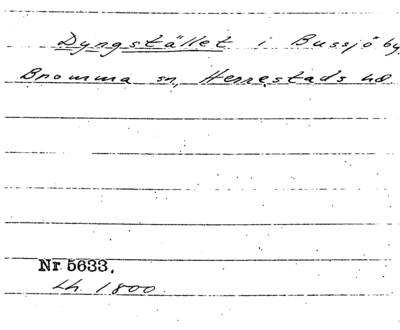 Dyngstället i Bussjö by,
Bromma sn, Herrestads hd
Nr 5633.
Lh. 1800.